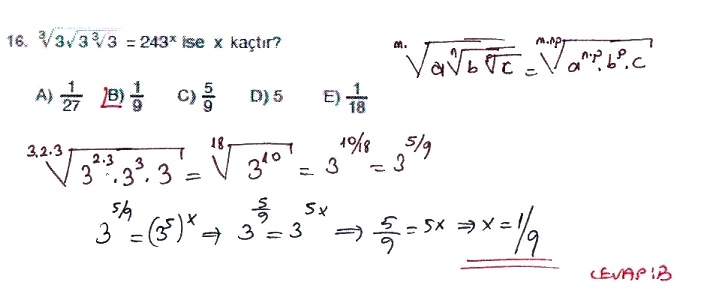 16. ∛(3√(3∛3)) = 243ˣ ise x kaçtır?
ᵐ·√(a ⁿ√(b ᵖ√c)) = ᵐ·ⁿ·ᵖ√(aⁿ·ᵖ . bᵖ . c)
A) 1/27 B) 1/9 C) 5/9 D) 5 E) 1/18
³·²·³√(3²·³ . 3³ . 3) = ¹⁸√(3¹⁰) = 3^(10/18) = 3^(5/9)
3^(5/9) = (3⁵)ˣ ⇒ 3^(5/9) = 3^(5x) ⇒ 5/9 = 5x ⇒ x = 1/9
CEVAP:B